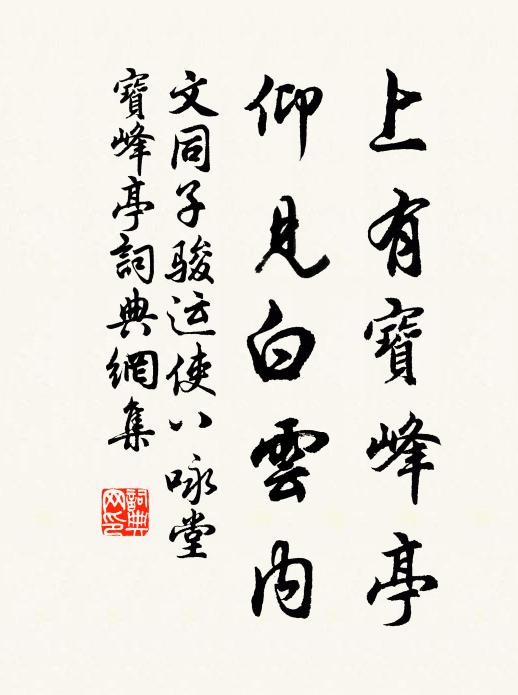 上有寶峰亭
仰見白雲内
文同子骏运使八咏堂
寶峰亭詞典網集
詞典网印